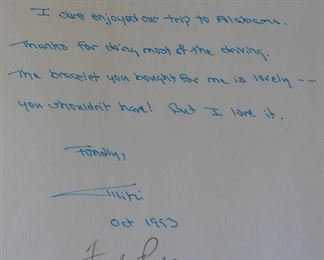 I sure enjoyed our trip to Alabama.
Thanks for doing most of the driving.
The bracelet you bought for me is lovely --
you shouldn't have! But I love it.
Fondly,
Mitzi
Oct 1993